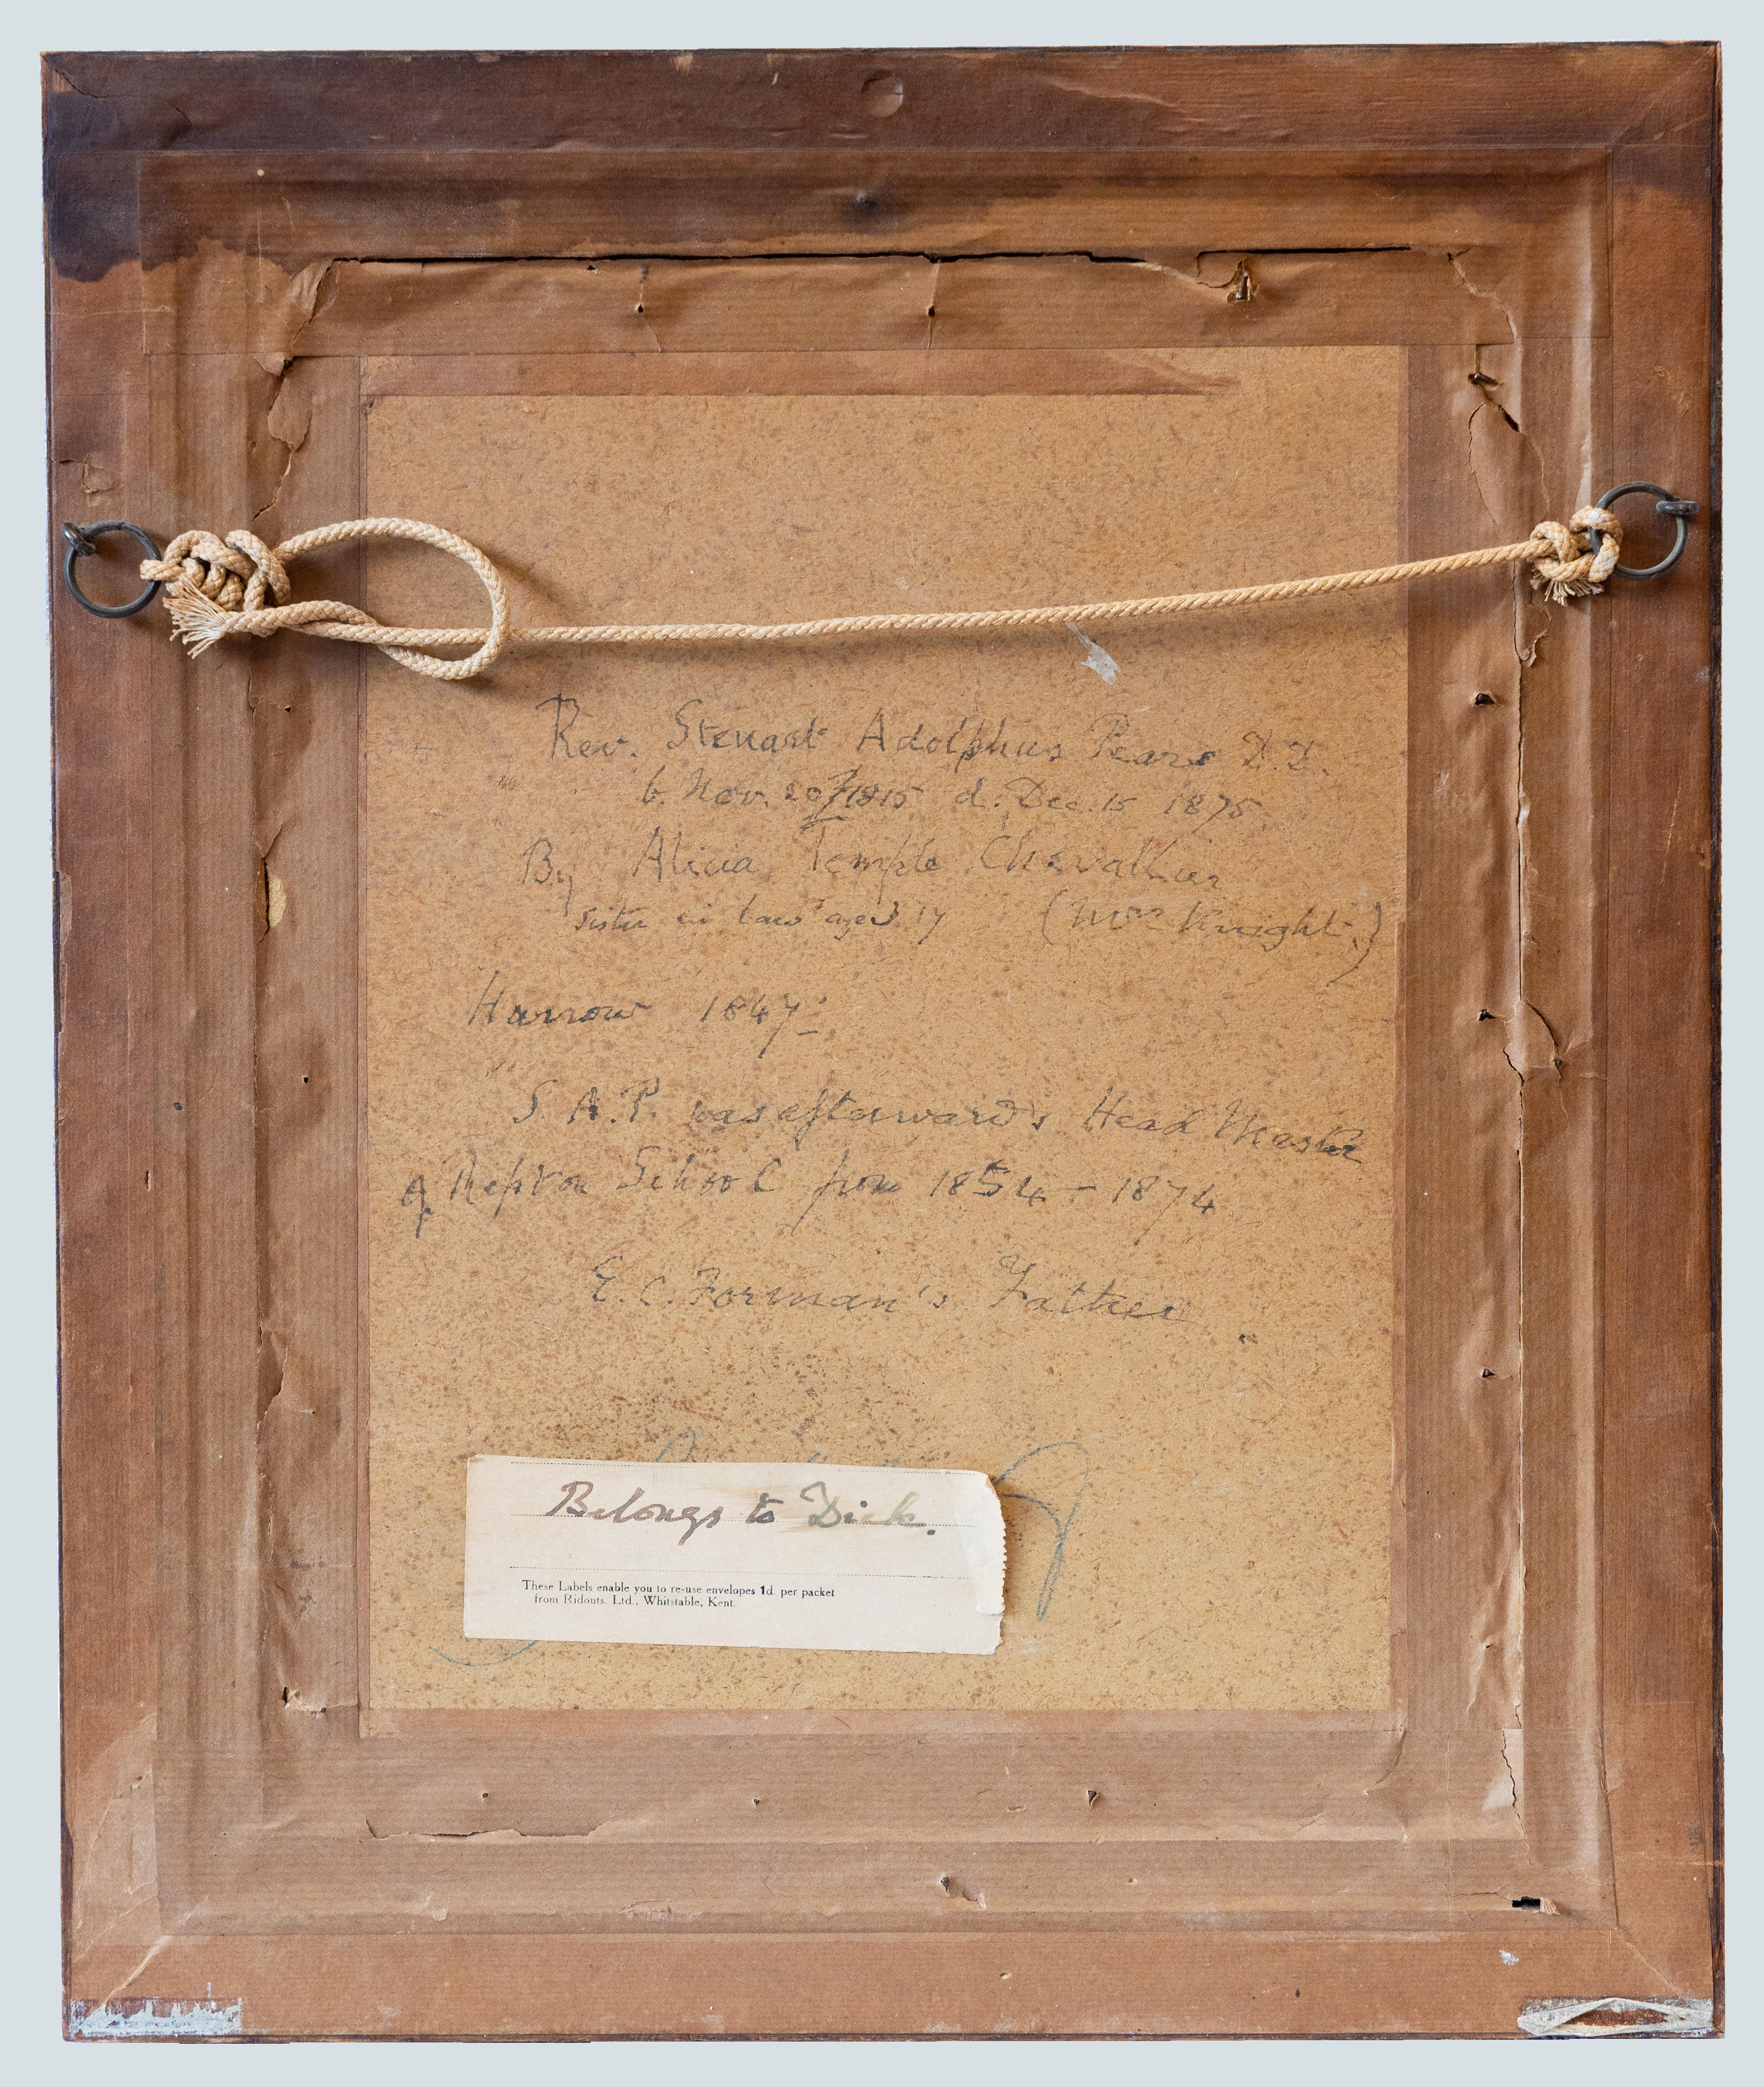 Rev. Steuart Adolphus Pears D.D.
b. Nov. 20 1815 d. Dec. 15 1875
By Alicia Temple Chevallier
sister in law aged 17 (Mrs Knight.)
Harrow 1847
S. A. P. was afterwards Head Master
of Repton School from 1854 - 1874
E. C. Forman's Father.
Belongs to Dick.
These Labels enable you to re-use envelopes 1d. per packet
from Ridouts. Ltd., Whitstable, Kent.